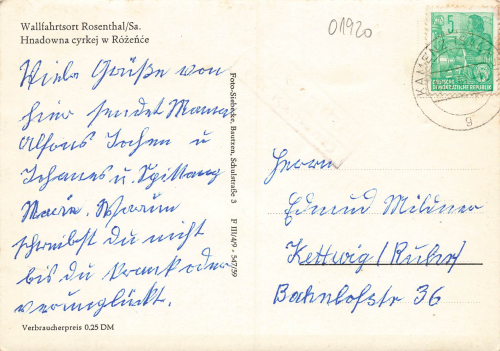 Wallfahrtsort Rosenthal/Sa.
Hnadowna cyrkej w Róžeńće
01920
Viele Grüße von
hier sendet Mama
Alfons Jochen u
Johanes u. Spittang
Maria. Warum
schreibst du nicht
bis du krank oder
verunglückt.
Verbraucherpreis 0,25 DM
Foto-Siebecke, Bautzen, Schulstraße 3 F III/4/9 - 547/59
5
DEUTSCHE
DEMOKRATISCHE REPUBLIK
KAMENZ
g
Herrn
Edmund Mildner
Kettwig/Ruhr/
Bahnhofstr 36